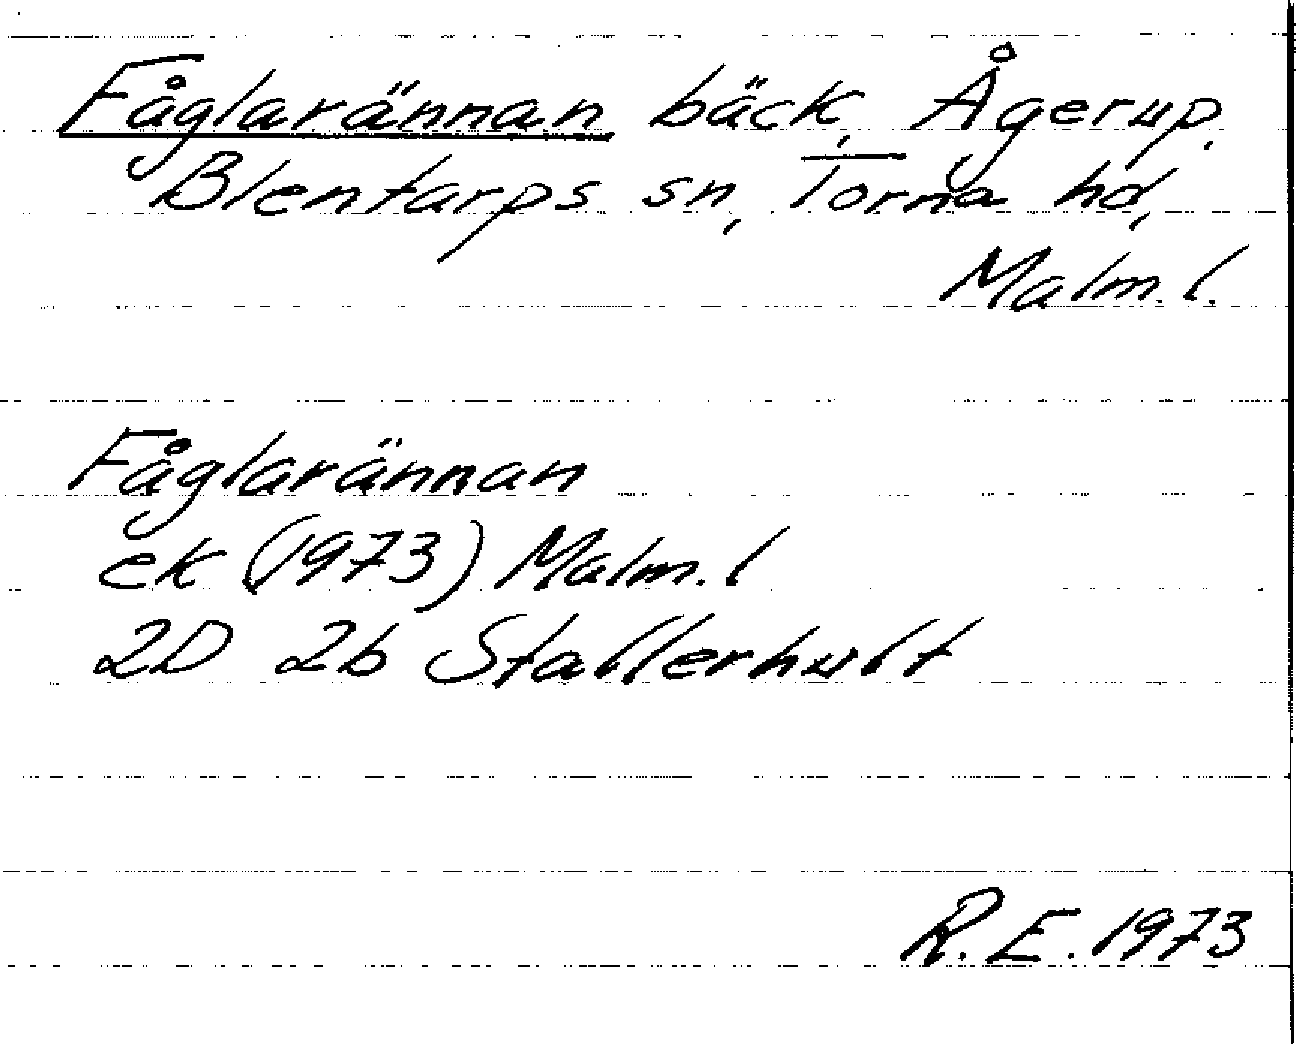 Fåglarännan bäck, Ågerup,
Blentarps sn, Torna hd,
Malm. l.
Fåglarännan
ek (1973) Malm. l
2D 2b Stallerhult
R.E. 1973